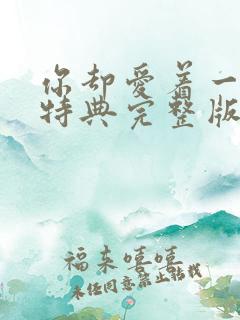 你却爱着一
特典完整版
福来嘻嘻
未经同意禁止转载